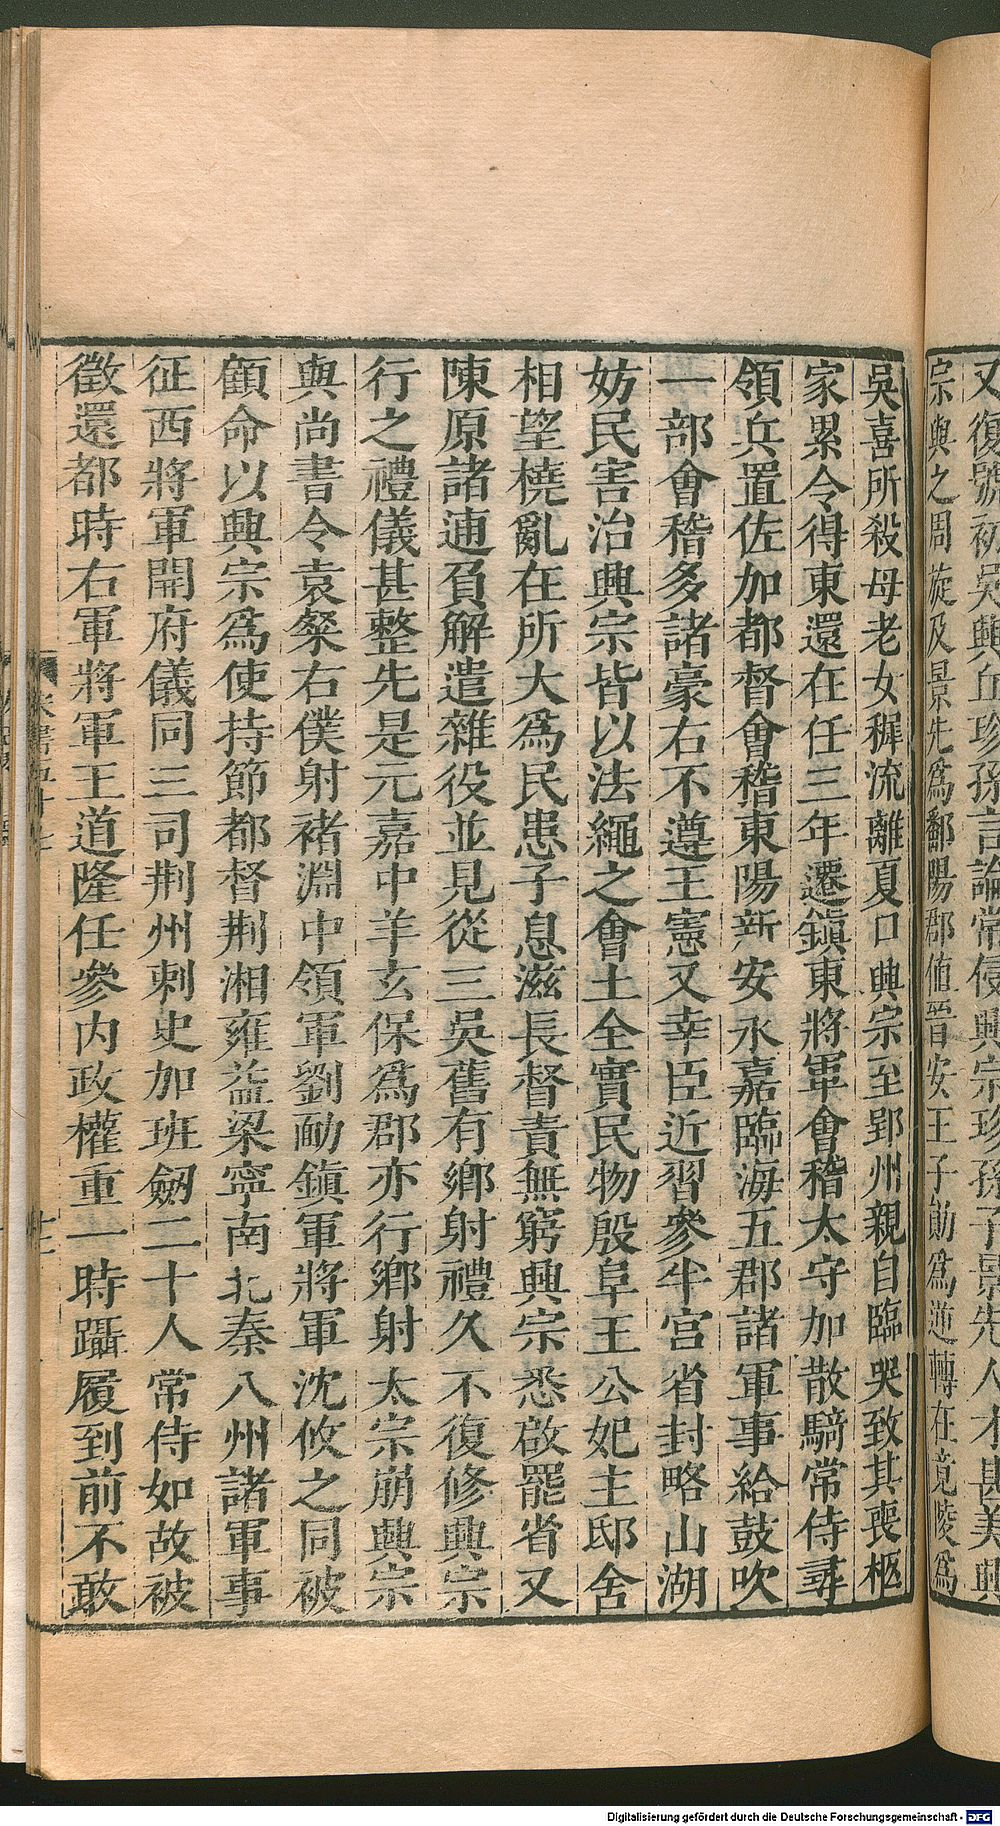 又復號初吳興丘珍孫言論常侵興宗珍孫子景先人才甚美興
宗與之周旋及景先爲鄱陽郡値晉安王子勛爲逆轉在竟陵爲
吳喜所殺母老女稺流離夏口興宗至郢州親自臨哭致其喪柩
家累令得東還在任三年遷鎭東將軍會稽太守加散騎常侍尋
領兵置佐加都督會稽東陽新安永嘉臨海五郡諸軍事給鼓吹
一部會稽多諸豪右不遵王憲又幸臣近習參半宮省封略山湖
妨民害治興宗皆以法繩之會土全實民物殷阜王公妃主邸舍
相望橈亂在所大爲民患子息滋長督責無窮興宗悉啟罷省又
陳原諸逋負解遣雜役並見從三吳舊有鄉射禮久不復修興宗
行之禮儀甚整先是元嘉中羊玄保爲郡亦行鄉射太宗崩興宗
與尚書令袁粲右僕射褚淵中領軍劉勔鎭軍將軍沈攸之同被
顧命以興宗爲使持節都督荆湘雍益梁寧南北秦八州諸軍事
征西將軍開府儀同三司荆州刺史加班劒二十人常侍如故被
徵還都時右軍將軍王道隆任參內政權重一時躡履到前不敢
宋書五十七
Digitalisierung gefördert durch die Deutsche Forschungsgemeinschaft - DFG